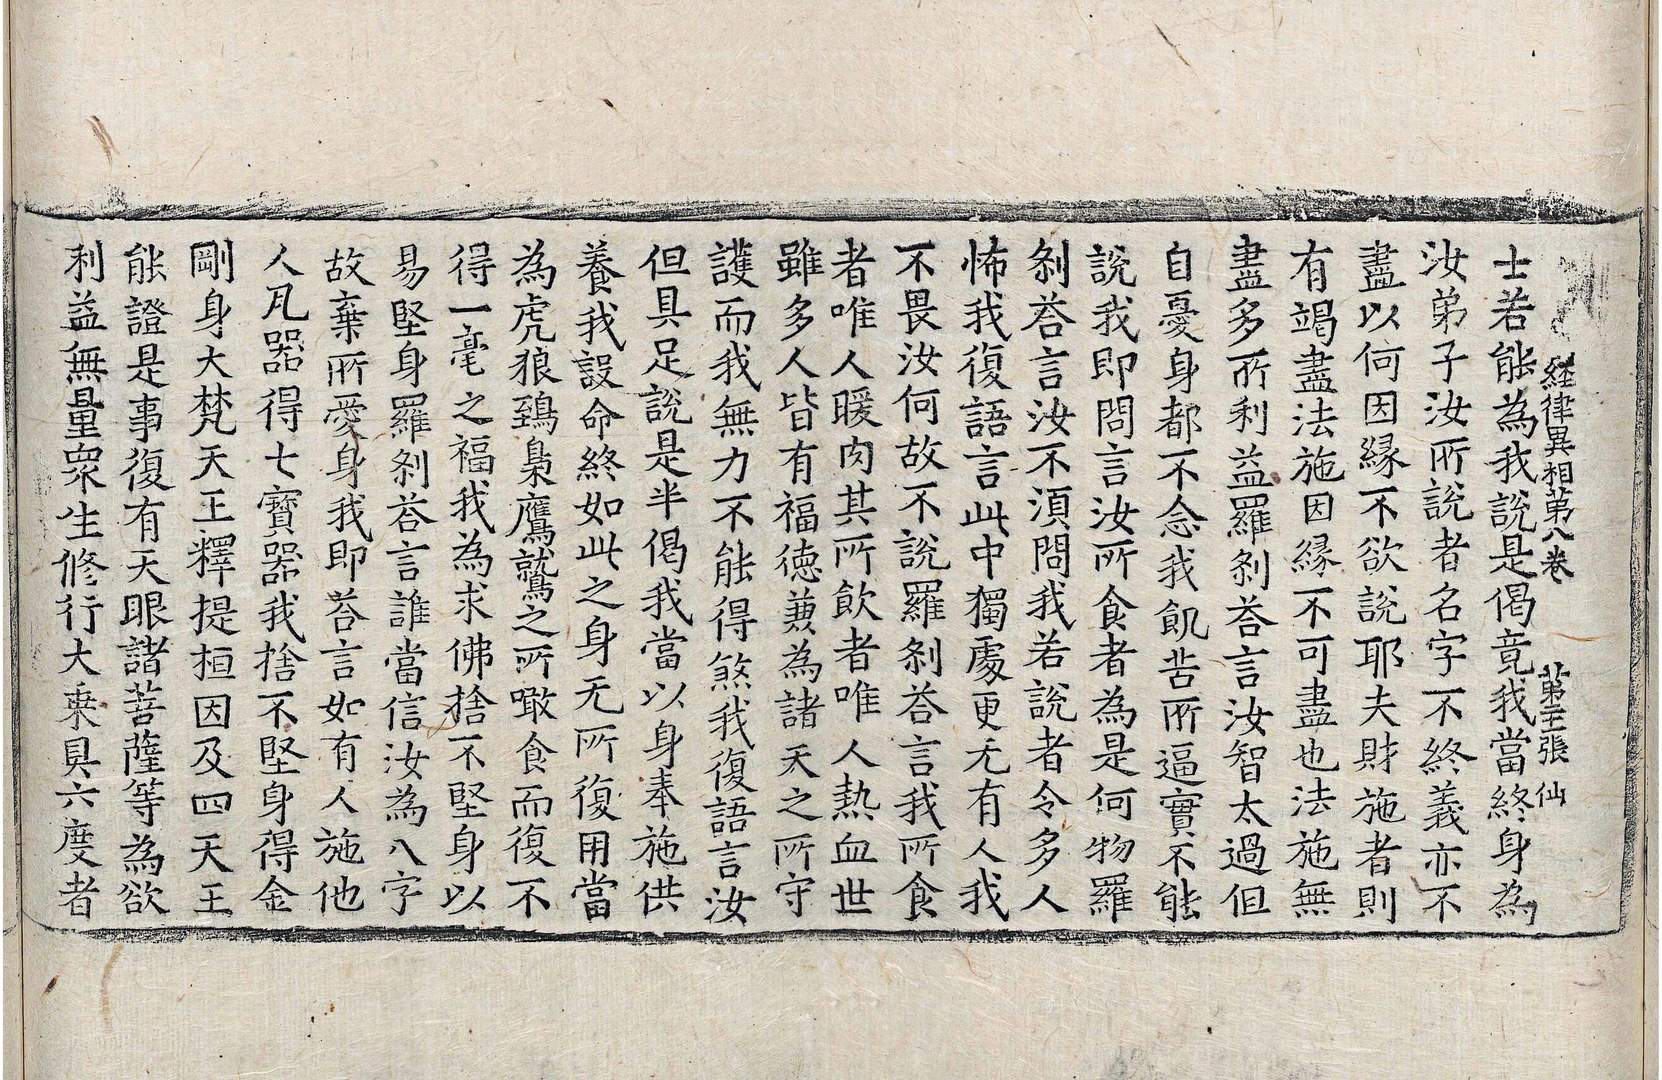 經律異相第八卷 第三張 仙
士若能為我說是偈竟我當終身為
汝弟子汝所說者名字不終義亦不
盡以何因緣不欲說耶夫財施者則
有竭盡法施因緣不可盡也法施無
盡多所利益羅剎荅言汝智太過但
自憂身都不念我飢苦所逼實不能
說我即問言汝所食者為是何物羅
剎荅言汝不湏問我若說者令多人
怖我復語言此中獨處更无有人我
不畏汝何故不說羅剎荅言我所食
者唯人暖肉其所飲者唯人熱血世
雖多人皆有福德兼為諸天之所守
護而我無力不能得煞我復語言汝
但具足說是半偈我當以身奉施供
養我設命終如此之身无所復用當
為虎狼鵄梟鷹鷲之所噉食而復不
得一毫之福我為求佛捨不堅身以
易堅身羅剎荅言誰當信汝為八字
故棄所愛身我即荅言如有人施他
人凡器得七寶器我捨不堅身得金
剛身大梵天王釋提桓因及四天王
能證是事復有天眼諸菩薩等為欲
利益無量眾生修行大乗具六度者